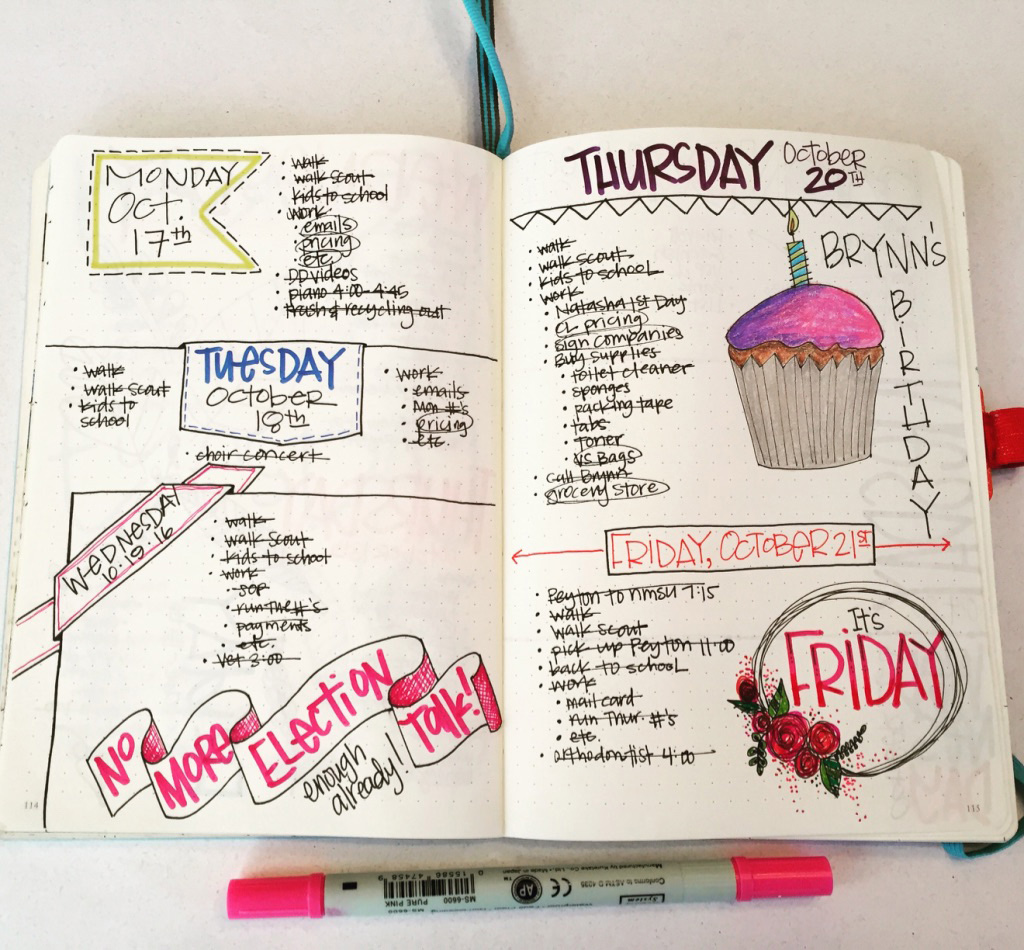 MONDAY
OCT.
17th
• walk
• walk scout
• kids to school
• work
• emails
• pricing
• etc.
• DD videos
• piano 4:00-4:45
• trash & recycling out
TUESDAY
OCTOBER
18th
• walk
• walk scout
• kids to
school
• work
• emails
• Mon #'s
• pricing
• etc.
• choir concert
WEDNESDAY
10.19.16
• walk
• walk scout
• kids to school
• work
• SOP
• run the #'s
• payments
• etc.
• vet 3:00
NO MORE ELECTION Talk!
enough
already!
114
THURSDAY October
20TH
BRYNN'S
BiRTHDAY
• walk
• walk scout
• kids to school
• work
• Natasha 1st Day
• CL pricing
• sign companies
• Buy supplies
• toilet cleaner
• sponges
• packing tape
• tabs
• toner
• VS Bags
• call Brynn
• grocery store
FRiDAY, OCTOBER 21ST
• Peyton to NMSU 7:15
• walk
• walk scout
• pick up Peyton 11:00
• back to school
• work
• mail card
• run Thur. #'s
• etc.
• orthodontist 4:00
It's
FRiDAY
115
Manufactured by Kuretake Co., Ltd. • Made in Japan
Conforms to ASTM D 4236
System
AP
CE
TM
0 15586 47458 9
MS-6600
PURE PINK
MS-6600